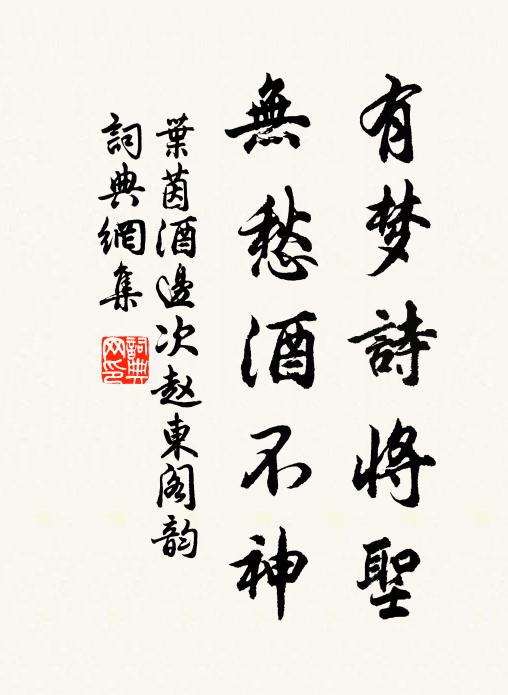 有梦詩將聖
無愁酒不神
葉茵酒邊次赵東阁韵
詞典網集
詞典
网印